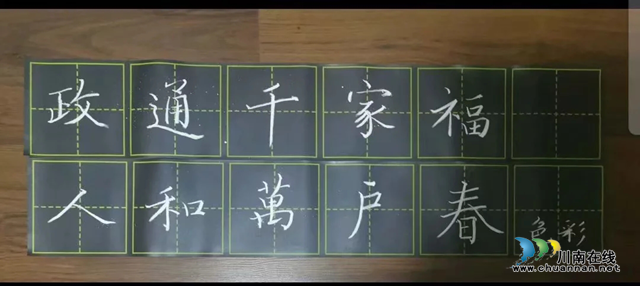 政通千家福
人和萬戶春
色彩
川南在线
www.chuannan.net